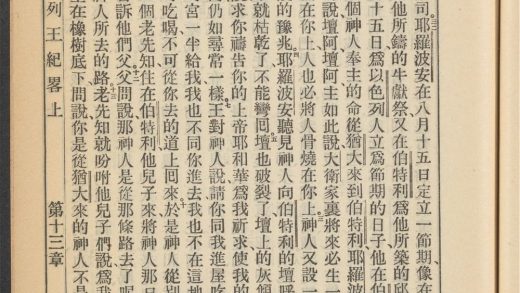 司耶羅波安在八月十五日定立一節期像在
他所鑄的牛獻祭又在伯特利爲他所築的邱
十五日爲以色列人立爲節期的日子他在伯
個神人奉主的命從猶大來到伯特利耶羅波
說壇阿壇阿主如此說大衛家裏將來必生一
在你上人也必將人骨燒在你上神人又設一
的豫兆耶羅波安聽見神人向伯特利的壇呼
就枯乾了不能彎囘壇也破裂了壇上的灰傾
求你禱告你的上帝耶和華爲我祈求使我的
仍如尋常一樣王對神人說請你同我進屋吃
宮一半給我我也不同你進去我也不在這地
吃喝不可從你去的道上囘來於是神人從別
個老先知住在伯特利他兒子來將神人那日
訴他們父父問說那神人是從那條路去了呢
人所去的路老先知就吩咐他兒子們說爲我
在橡樹底下問說你是從猶大來的神人不是
列王紀畧上 第十三章